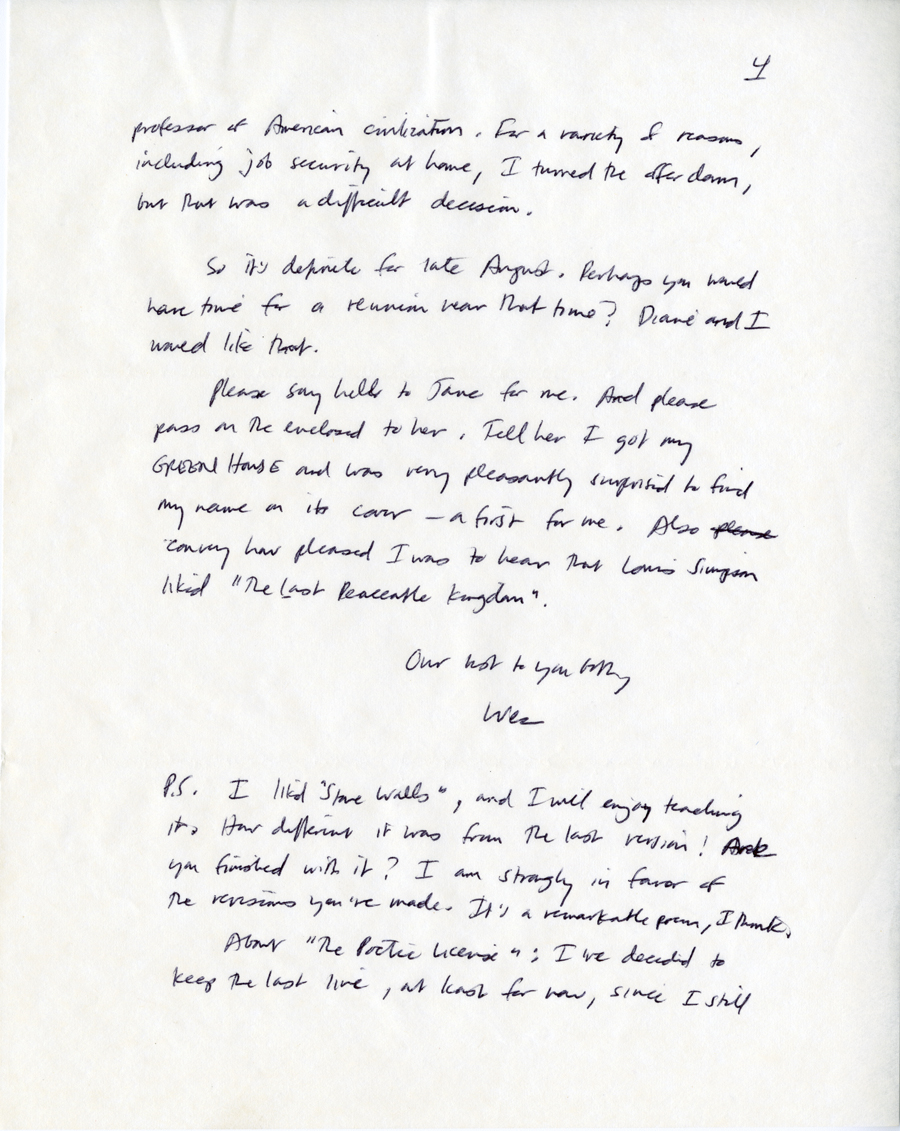 4
professor of American civilization. For a variety of reasons,
including job security at home, I turned the offer down,
but that was a difficult decision.
So it's definite for late August. Perhaps you would
have time for a reunion near that time? Diane and I
would like that.
Please say hello to Jane for me. And please
pass on the enclosed to her. Tell her I got my
GREENHOUSE and was very pleasantly surprised to find
my name on its cover – a first for me. Also please
convey how pleased I was to hear that Louis Simpson
liked "The Last Peaceable Kingdom".
Our best to you both,
Wes
P.S. I liked "Stone Walls", and I will enjoy teaching
it. How different it was from the last version! Are
you finished with it? I am strongly in favor of
the revisions you've made. It's a remarkable poem, I think.
About "The Poetic License": I've decided to
keep the last line, at least for now, since I still